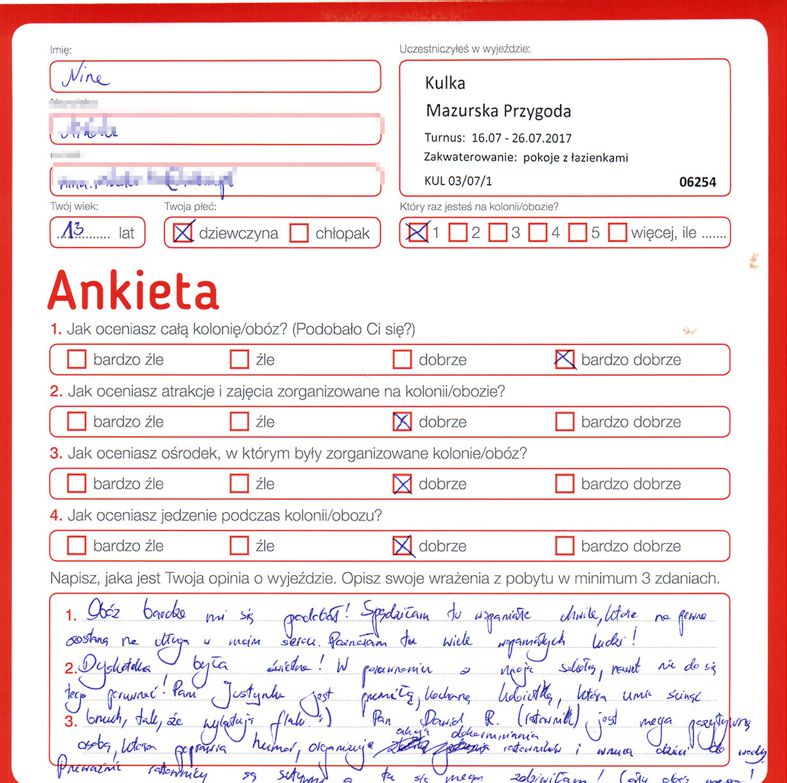 Imię:
Uczestniczyłeś w wyjeździe:
Nina
Kulka
Mazurska Przygoda
Turnus: 16.07 - 26.07.2017
Zakwaterowanie: pokoje z łazienkami
KUL 03/07/1 06254
Twój wiek: Twoja płeć: Który raz jesteś na kolonii/obozie?
13 lat dziewczyna chłopak 1 2 3 4 5 więcej, ile .......
Ankieta
1. Jak oceniasz całą kolonię/obóz? (Podobało Ci się?)
bardzo źle źle dobrze bardzo dobrze
2. Jak oceniasz atrakcje i zajęcia zorganizowane na kolonii/obozie?
bardzo źle źle dobrze bardzo dobrze
3. Jak oceniasz ośrodek, w którym były zorganizowane kolonie/obóz?
bardzo źle źle dobrze bardzo dobrze
4. Jak oceniasz jedzenie podczas kolonii/obozu?
bardzo źle źle dobrze bardzo dobrze
Napisz, jaka jest Twoja opinia o wyjeździe. Opisz swoje wrażenia z pobytu w minimum 3 zdaniach.
1. Obóz bardzo mi się podobał! Spędziłam tu wspaniałe chwile, które na pewno
zostaną na długo w moim sercu. Poznałam tu wiele wspaniałych ludzi!
2. Dyskoteka była świetna! W porównaniu z moją szkołą, nawet nie da się
tego porównać! Pani Justynka jest przemiłą, kochaną kobietką, która umie ścisnąć
3. brzuch, tak, że wylatują flaki :) Pan Dawid R. (ratownik) jest mega pozytywną
osobą, która poprawia humor, organizuje akcję dokarmiania ratowników i wrzuca dzieci do wody
Przeważnie ratownicy są sztywni a tu się mega zdziwiłam!